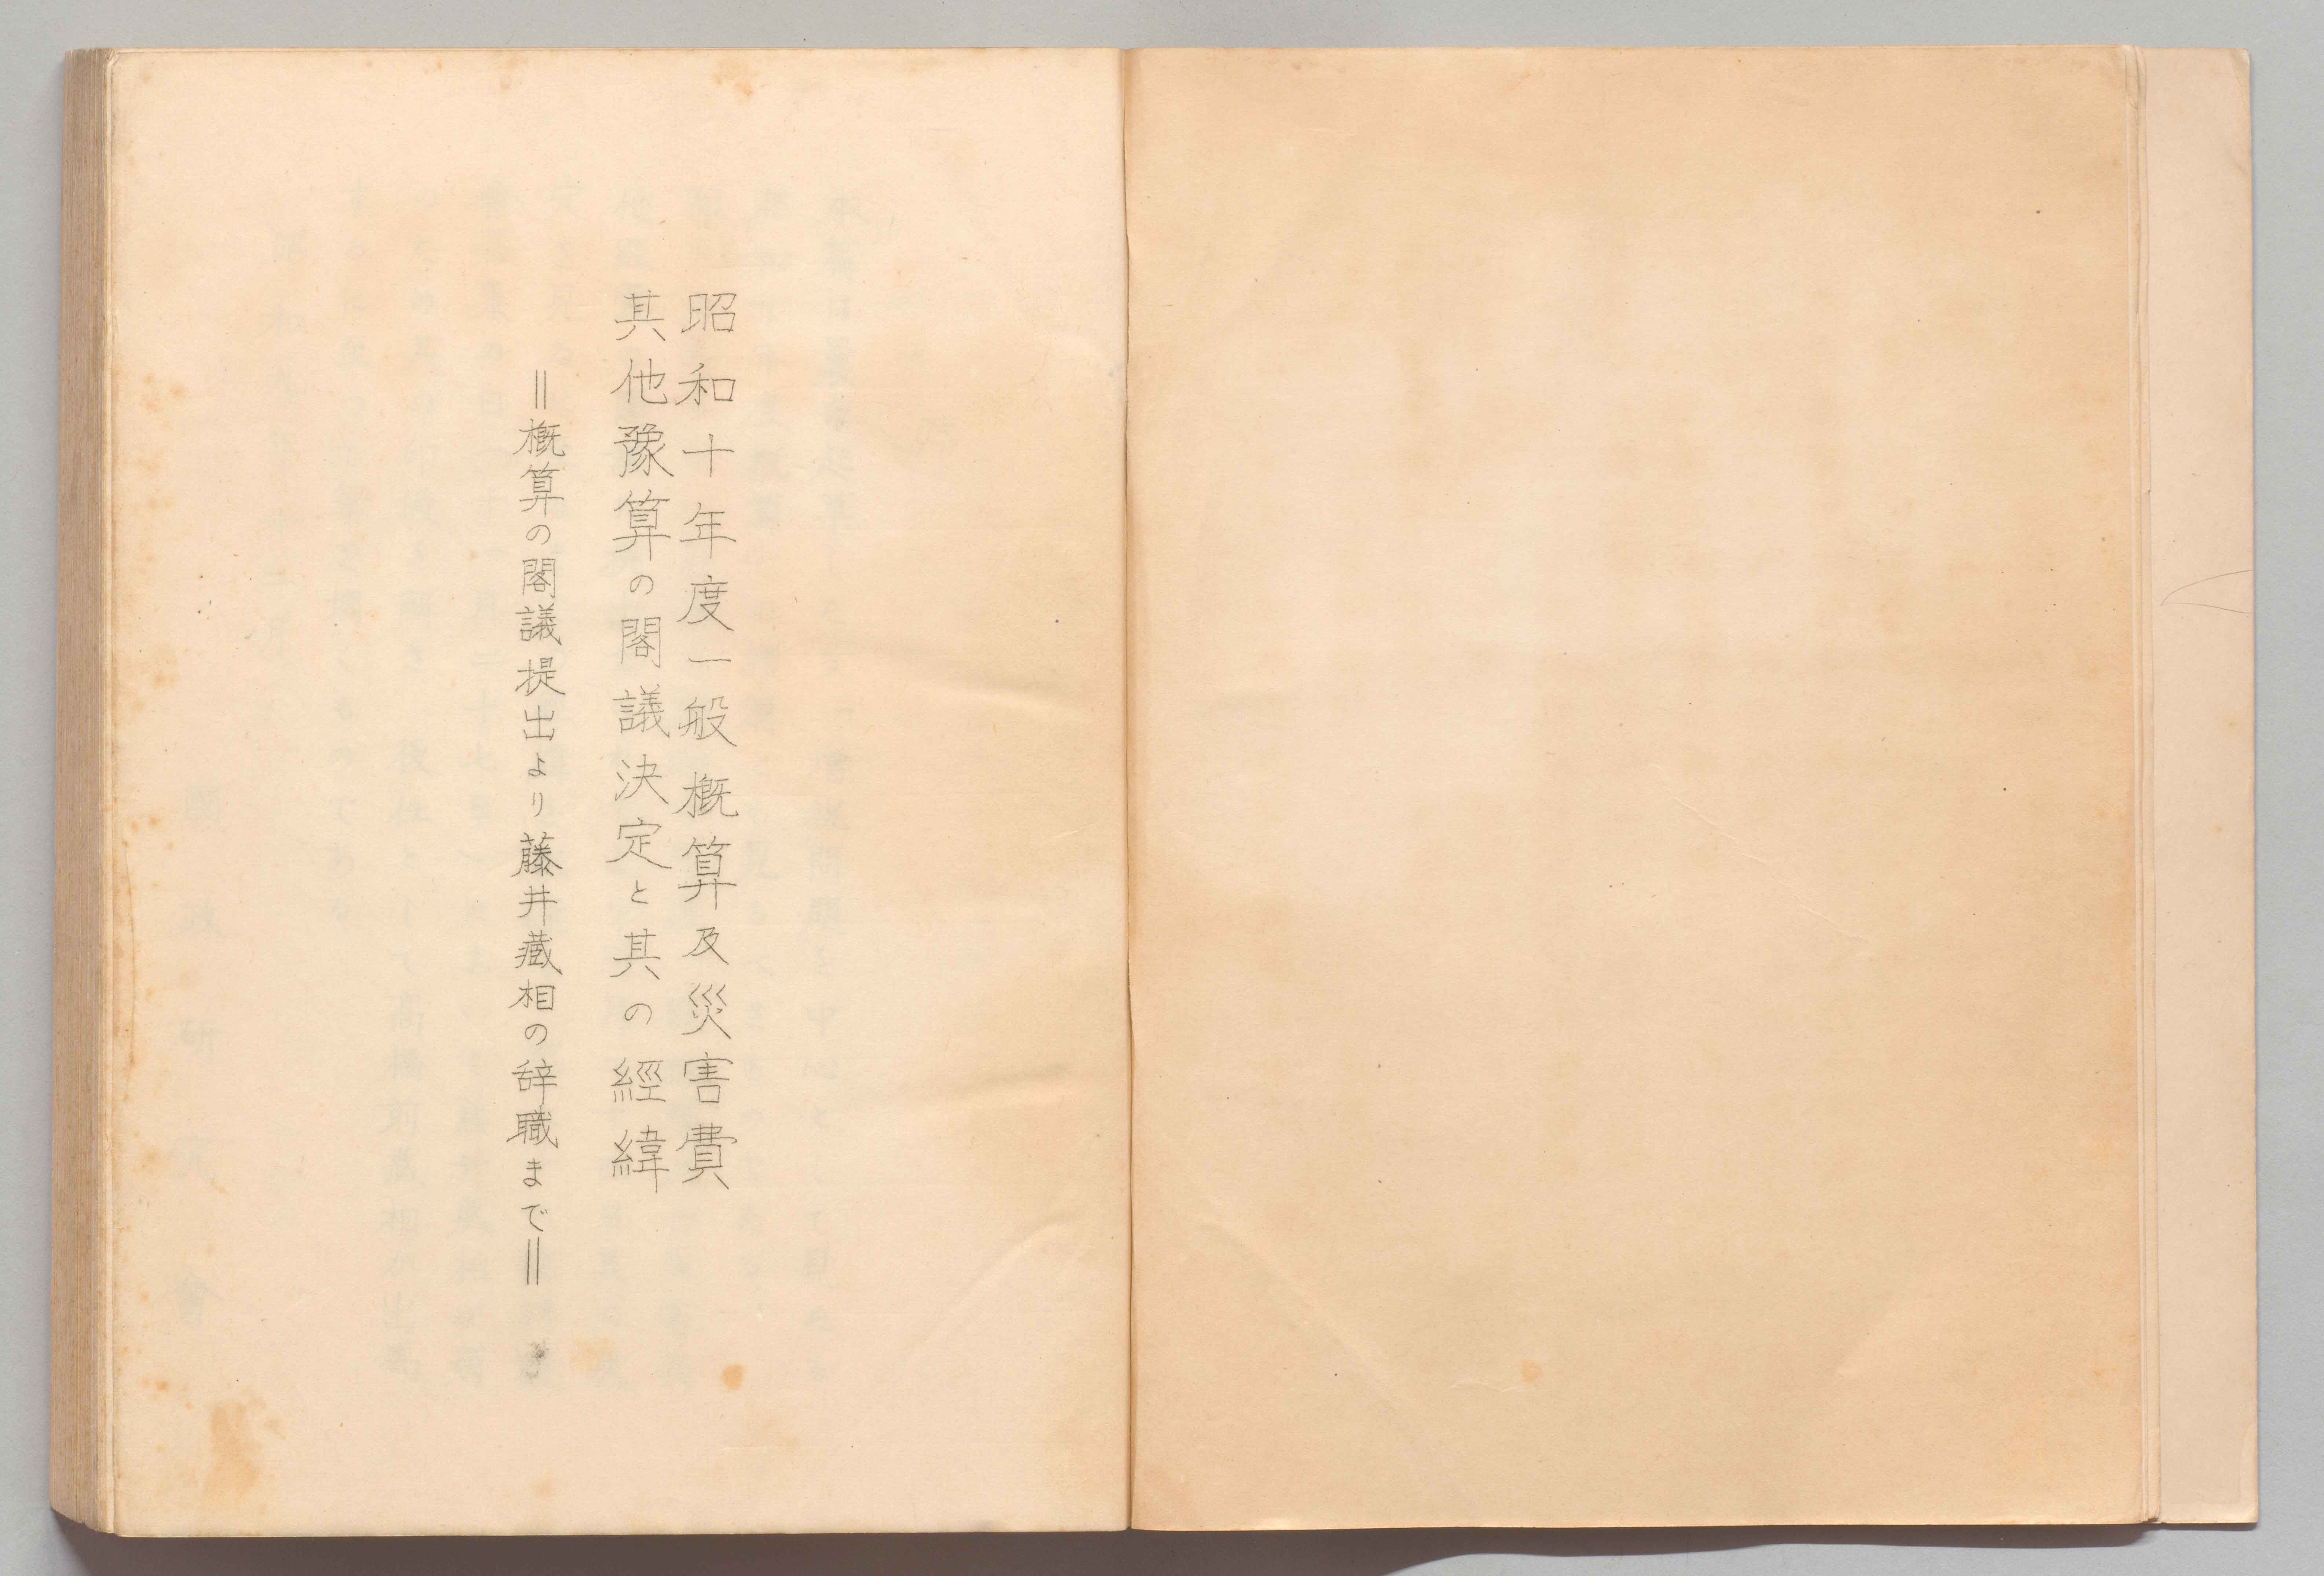 昭和十年度一般概算及災害費
其他豫算の閣議決定と其の經緯
＝概算の閣議提出より藤井藏相の辞職まで＝